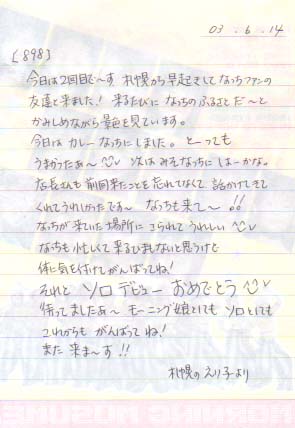 03.6.14
[898]
今日は2回目で〜す 札幌から早起きしてなっちファンの
友達と来ました! 来るたびに なっちのふるさと だ〜と
かみしめながら景色を見ています。
今日は カレーなっちにしました。と〜っても
うまかったあ〜 次は みそなっちにしよーかな。
店長さんも 前回来たことを忘れてなくて 話かけてきて
くれてうれしかったで〜す なっちも来て〜!!
なっちが来ていた場所に こられて うれしい
なっちも忙しくて来るひまないと思うけど
体に気を付けてがんばってね!
それと ソロデビュー おめでとう
待ってましたあ〜 モーニング娘としても ソロとしても
これからも がんばってね!
また 来ま〜す!!
札幌の えり子より
MORNING MUSUME